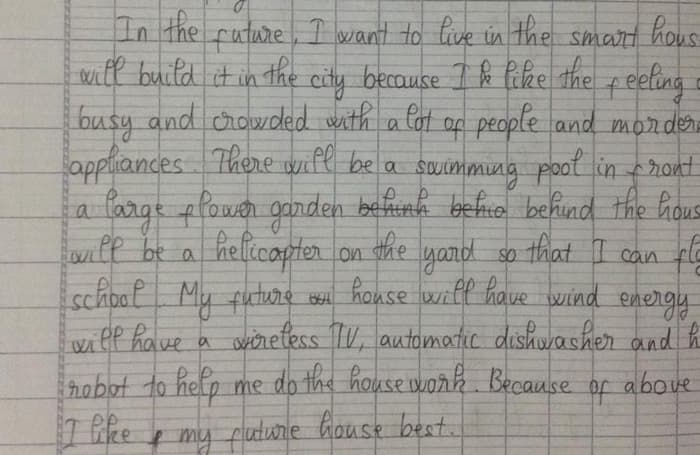 In the future, I want to live in the smart hous
will build it in the city because I like the feeling
busy and crowded with a lot of people and morder
appliances. There will be a swimming pool in front
a large flower garden behinh behio behind the hous
will be a helicapter on the yard so that I can fl
school. My future house will have wind energy
will have a wireless TV, automatic dishwasher and h
robot to help me do the house work. Because of above
I like my future house best.